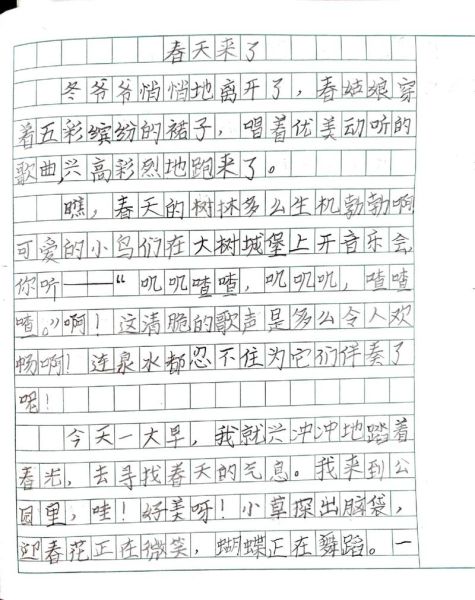 春天来了
冬爷爷悄悄地离开了，春姑娘穿
着五彩缤纷的裙子，唱着优美动听的
歌曲,兴高彩烈地跑来了。
瞧，春天的树林多么生机勃勃啊
可爱的小鸟们在大树城堡上开音乐会
你听——“叽叽喳喳，叽叽叽，喳喳
喳。”啊！这清脆的歌声是多么令人欢
畅啊！连泉水都忍不住为它们伴奏了
呢！
今天一大早，我就兴冲冲地踏着
春光，去寻找春天的气息。我来到公
园里，哇！好美呀！小草探出脑袋，
迎春花正在微笑，蝴蝶正在舞蹈。一